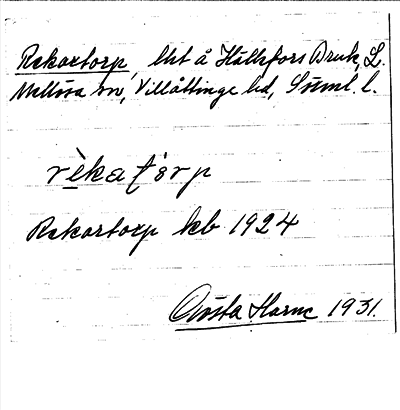 Rekartorp, lht å Hällefors Bruk, L.
Mellösa sn, Villåttinge hd, Söml. l.
rèkato̩rp
Rekartorp kb 1924
Gösta Harne 1931.